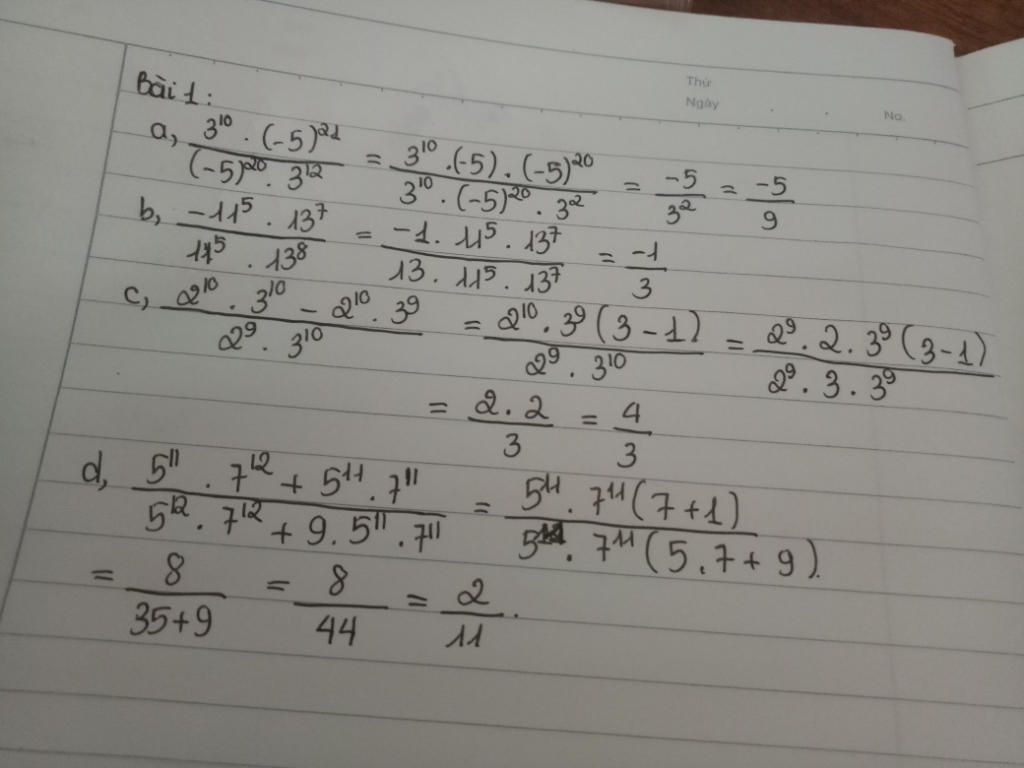 Thứ
Ngày
No.
Bài 1:
a, \frac{3^{10} . (-5)^{21}}{(-5)^{20} . 3^{12}} = \frac{3^{10} . (-5) . (-5)^{20}}{3^{10} . (-5)^{20} . 3^2} = \frac{-5}{3^2} = \frac{-5}{9}
b, \frac{-11^5 . 13^7}{11^5 . 13^8} = \frac{-1 . 11^5 . 13^7}{13 . 11^5 . 13^7} = \frac{-1}{3}
c, \frac{2^{10} . 3^{10} - 2^{10} . 3^9}{2^9 . 3^{10}} = \frac{2^{10} . 3^9 (3 - 1)}{2^9 . 3^{10}} = \frac{2^9 . 2 . 3^9 (3 - 1)}{2^9 . 3 . 3^9}
= \frac{2 . 2}{3} = \frac{4}{3}
d, \frac{5^{11} . 7^{12} + 5^{11} . 7^{11}}{5^{12} . 7^{12} + 9 . 5^{11} . 7^{11}} = \frac{5^{11} . 7^{11} (7 + 1)}{5^{11} . 7^{11} (5 . 7 + 9)}.
= \frac{8}{35+9} = \frac{8}{44} = \frac{2}{11}.